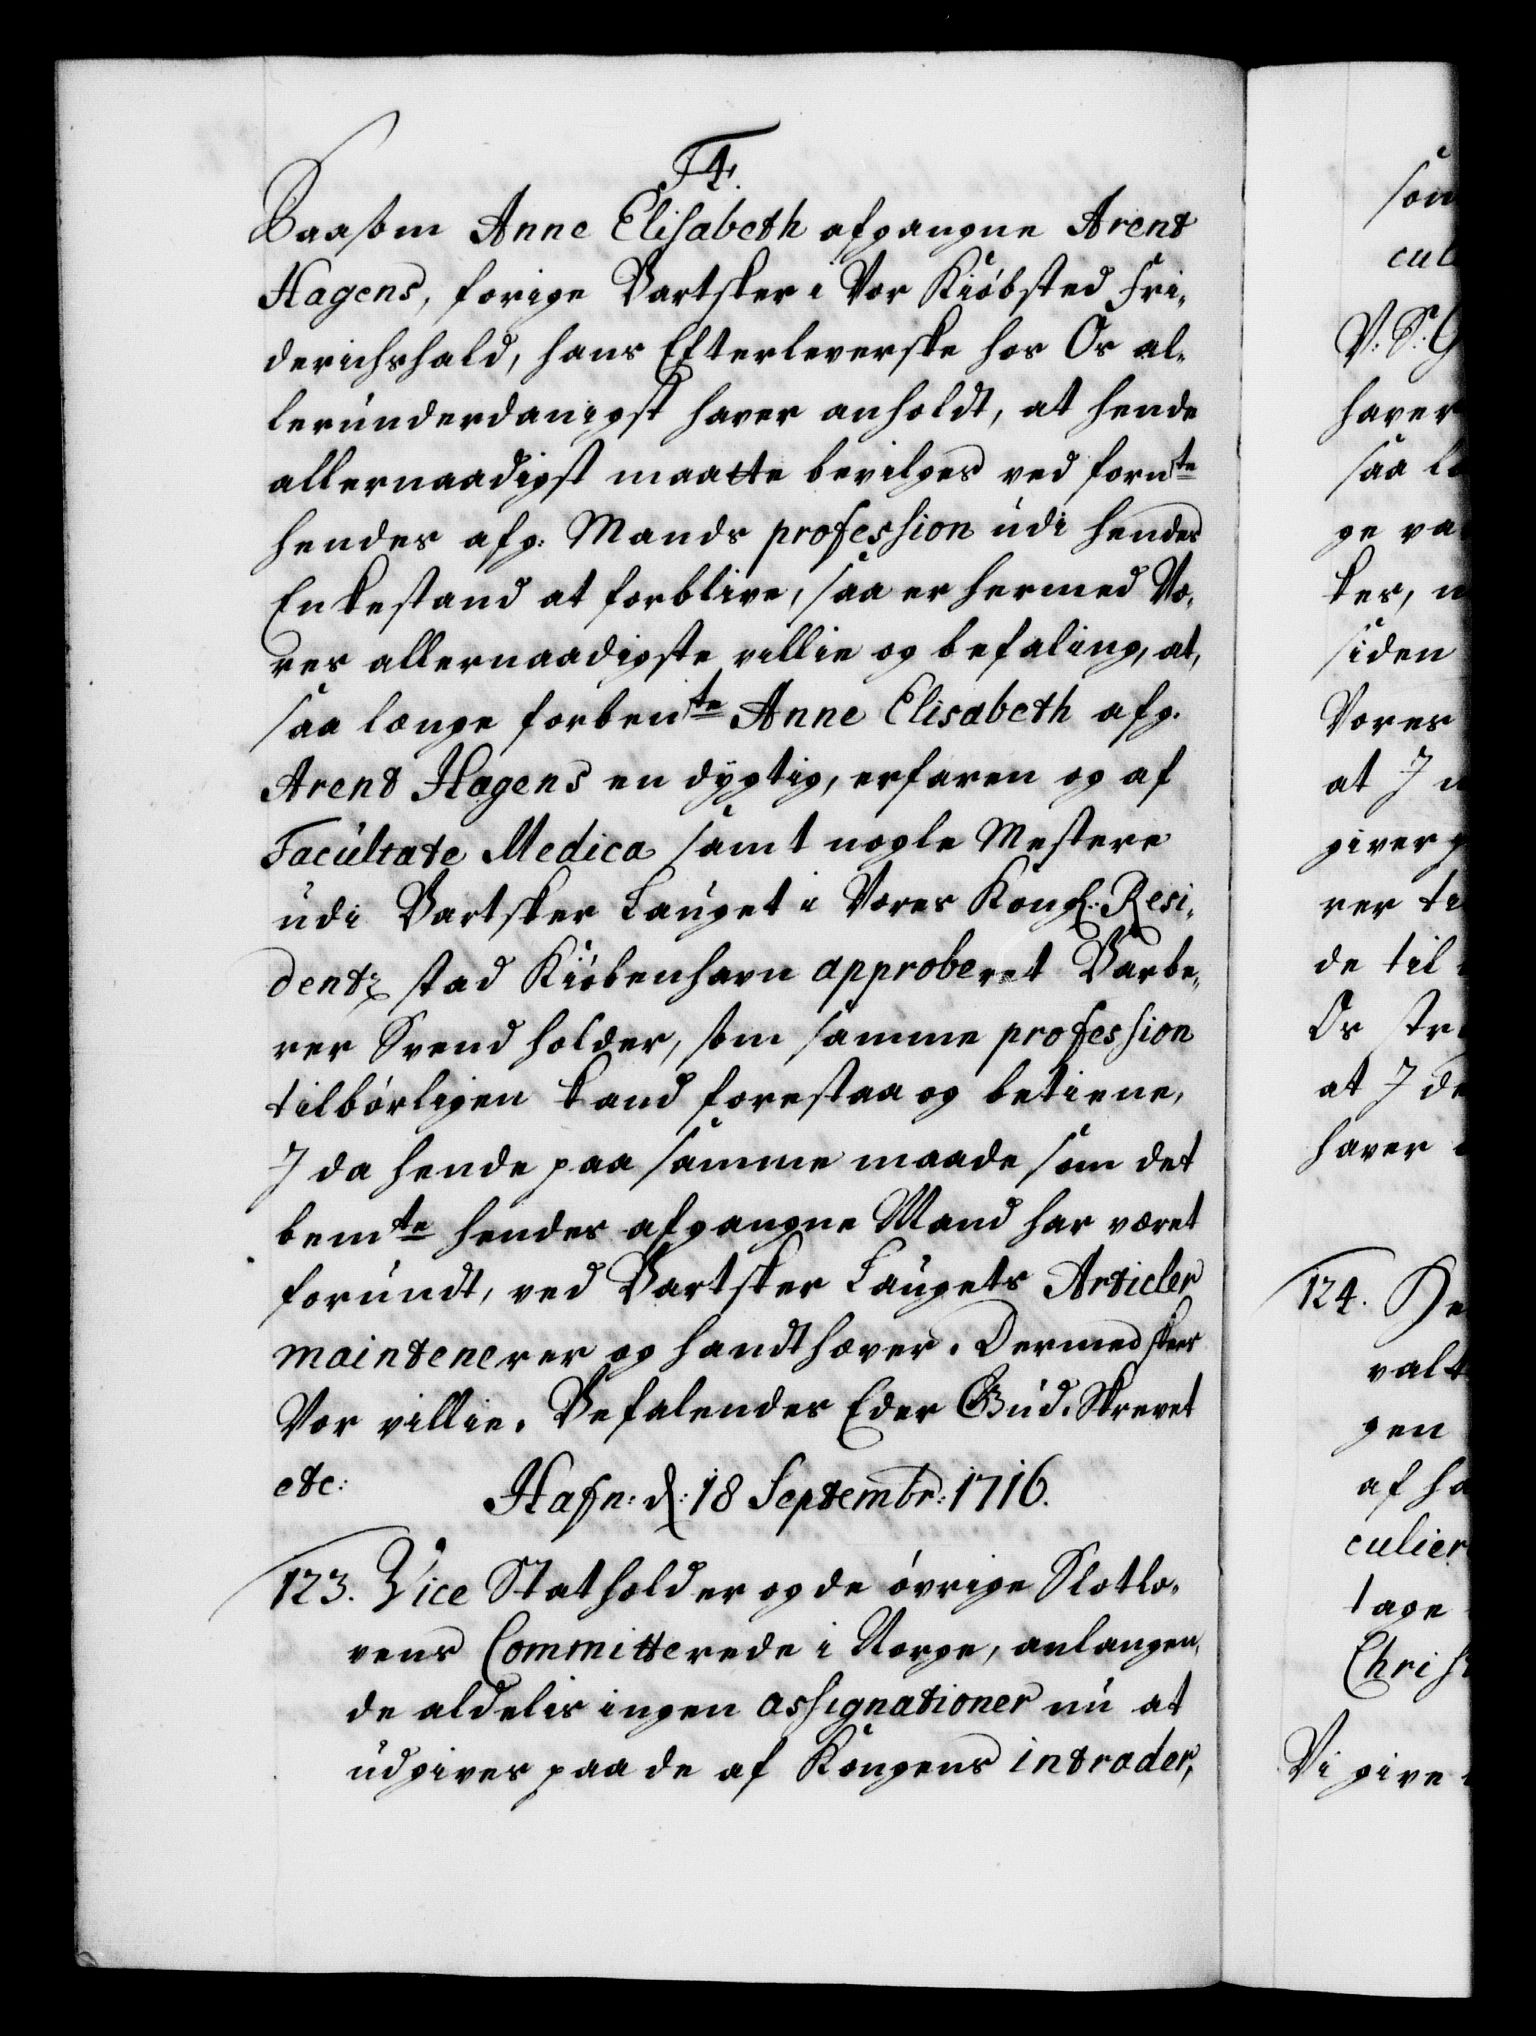 F4.
Saasom Anne Elisabeth afgangne Arent
Hagens, forige Bartsker i Vor Kiøbsted Fri-
derichshald, hans Efterleverske hos Os al-
lerunderdanigst haver anholdt, at hende
allernaadigst maatte bevilges ved fornte
hendes afg: Mands profession udi hendes
Enkestand at forblive, saa er hermed Vo-
res allernaadigste villie og befaling, at,
saa længe forbente Anne Elisabeth afg.
Arent Hagens en dygtig, erfaren og af
Facultate Medica samt nogle Mestere
udi Bartsker Lauget i Vores Kongl: Resi-
dentz stad Kiøbenhavn approberet Barbe-
rer Svend holder, som samme profession
tilbørligen kand forestaa og betiene,
I da hende paa samme maade som det
bemte hendes afgangne Mand har været
forundt, ved Bartsker Laugets Articler
maintenerer og handthæver. Dermed skeer
Vor villie. Befalendes Eder Gud. Skrevet
etc: Hafn: d: 18 Septembr: 1716.
123. Vice Statholder og de øvrige Slotlo-
vens Committerede i Norge, anlangen-
de aldelis ingen assignationer nu at
udgives paa de af Kongens intrader,
som
cul
V: S: G
haver
saa la
ge va
ker, n
siden
Vores
at I
giver
rer ti
de til
Os str
at I de
haver
124. He
valt
gen
af ha
culier
tage
Christ
Vi give